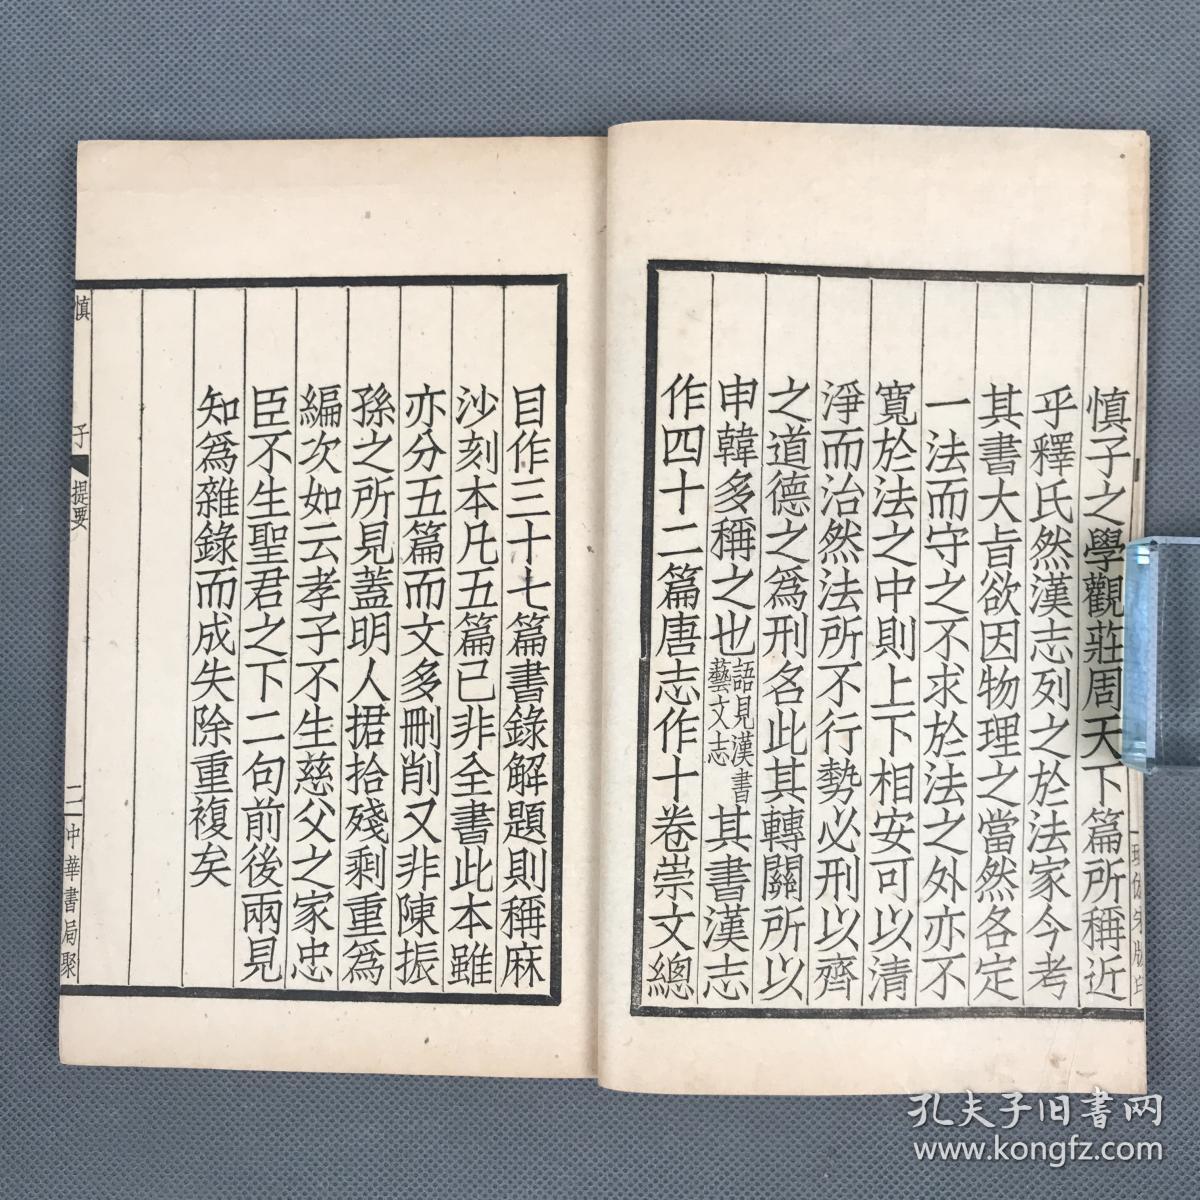 慎子之學觀莊周天下篇所稱近
乎釋氏然漢志列之於法家今考
其書大旨欲因物理之當然各定
一法而守之不求於法之外亦不
寬於法之中則上下相安可以清
淨而治然法所不行勢必刑以齊
之道德之爲刑名此其轉關所以
申韓多稱之也語見漢書藝文志其書漢志
作四十二篇唐志作十卷崇文總
目作三十七篇書錄解題則稱麻
沙刻本凡五篇已非全書此本雖
亦分五篇而文多刪削又非陳振
孫之所見蓋明人捃拾殘剩重爲
編次如云孝子不生慈父之家忠
臣不生聖君之下二句前後兩見
知爲雜錄而成失除重複矣
慎子 提要
二 中華書局聚
孔夫子旧书网
www.kongfz.com